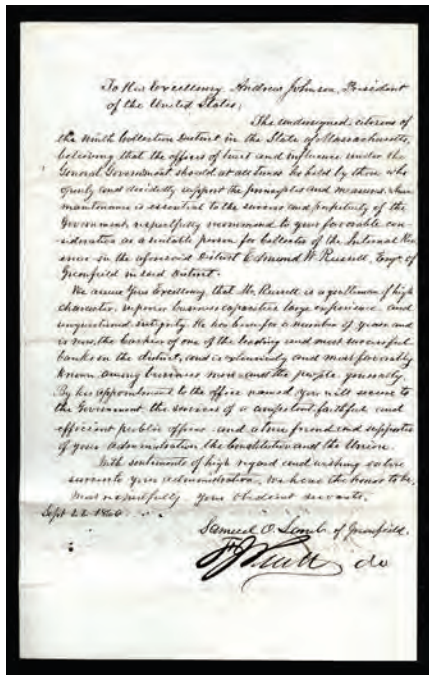 To His Excellency Andrew Johnson, President
of the United States;
The undersigned citizens of
the Ninth Collection District in the State of Massachusetts,
believing that the offices of trust and influence under the
General Government should at all times be held by those who
openly and decidedly support the principles and measures whose
maintenance is essential to the success and perpetuity of the
Government, respectfully recommend to your favorable con-
sideration as a suitable person for Collector of the Internal Rev
enue in the aforesaid District Edmund W. Russell, Esqr. of
Greenfield in said District.
We assure Your Excellency, that Mr. Russell is a gentleman of high
character, superior business capacities large experience and
unquestioned integrity. He has been for a number of years and
is now, the cashier of one of the leading and most successful
banks in the district, and is extensively and most favorably
known among business men and the people generally.
By his appointment to the office named you will secure to
the Government the services of a competent, faithful and
efficient public officer and a true friend and supporter
of your administration, the Constitution and the Union.
With sentiments of high regard and wishing
success to your administration, we have the honor to be,
most respectfully your obedient servants.
Sept 22 1866
Samuel O. Lamb of Greenfield.
do